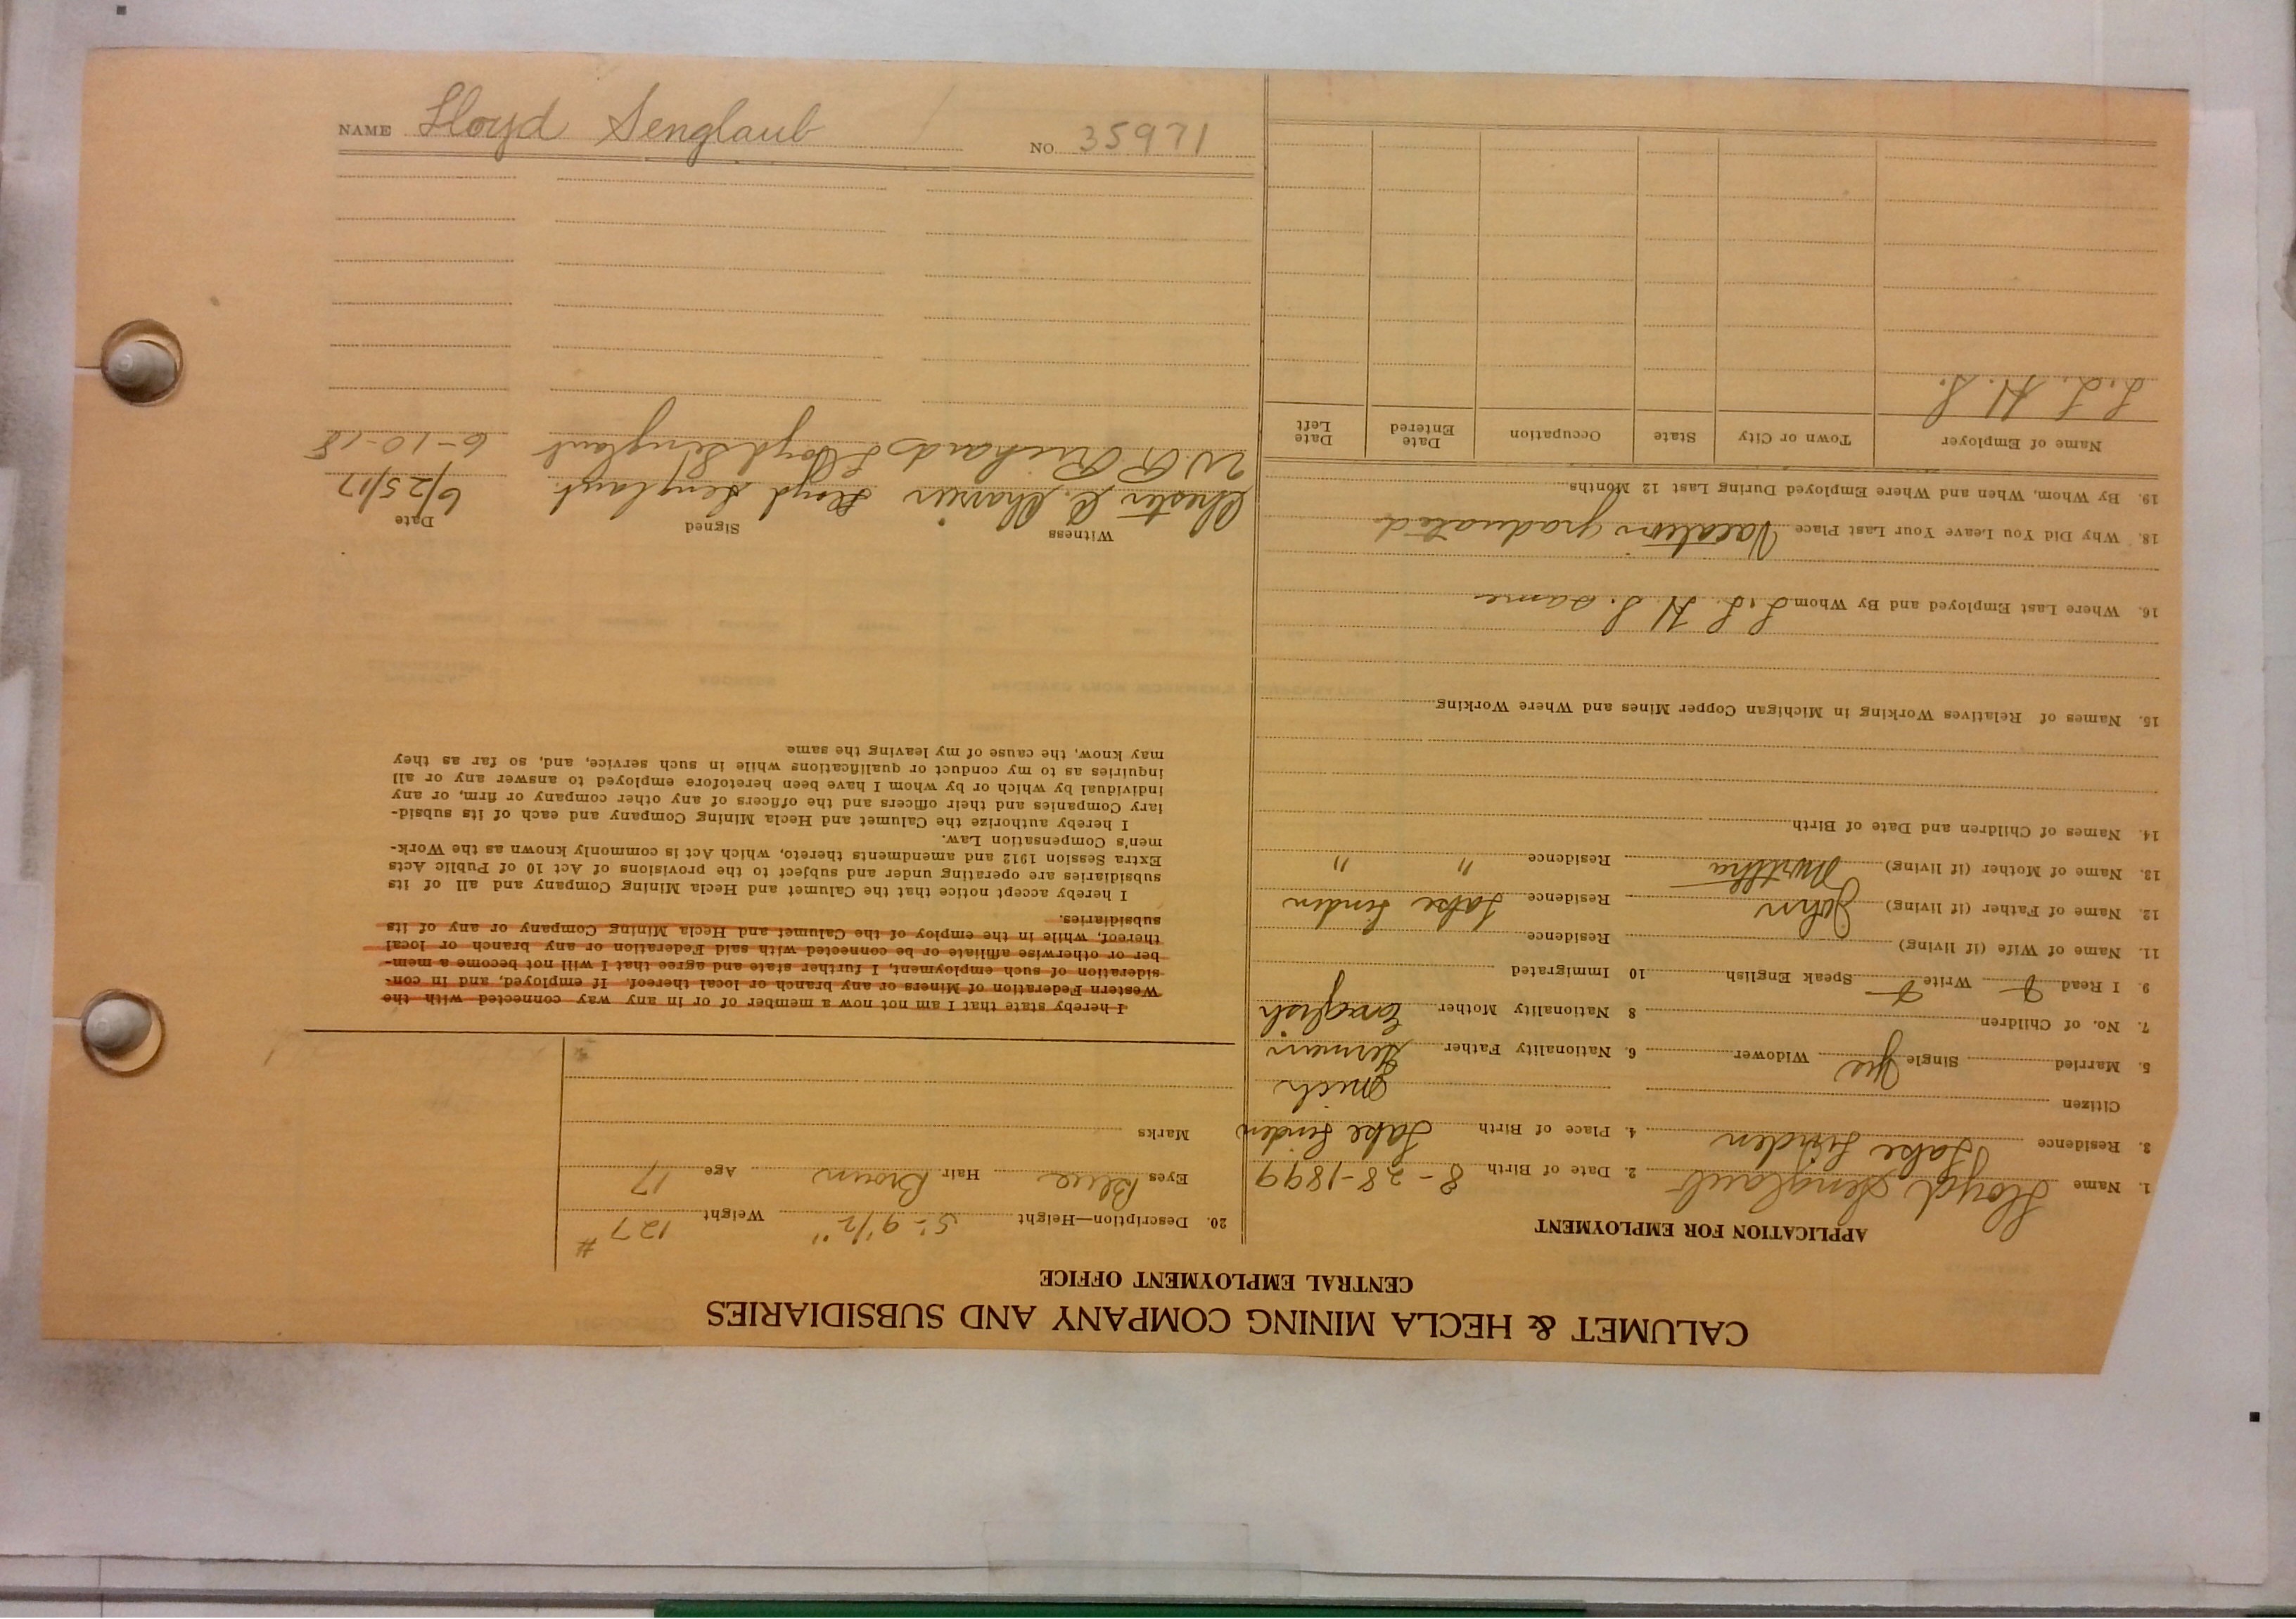 CALUMET & HECLA MINING COMPANY AND SUBSIDIARIES
CENTRAL EMPLOYMENT OFFICE
APPLICATION FOR EMPLOYMENT
1. Name Lloyd Senglaub 2. Date of Birth 8-28-1899
3. Residence Lake Linden 4. Place of Birth Lake Linden
Citizen Mich
5. Married Single Yes Widower 6. Nationality Father German
7. No. of Children 8 Nationality Mother English
9. I Read Write Speak English 10 Immigrated
11. Name of Wife (if living) Residence
12. Name of Father (if living) John Residence Lake Linden
13. Name of Mother (if living) Residence " "
14. Names of Children and Date of Birth
15. Names of Relatives Working in Michigan Copper Mines and Where Working
16. Where Last Employed and By Whom L. L. H. S. same
18. Why Did You Leave Your Last Place Vacation graduated
19. By Whom, When and Where Employed During Last 12 Months
Name of Employer Town or City State Occupation Date Entered Date Left
L. L. H. S.
20. Description—Height 5'-9 1/2" Weight 127 #
Eyes Blue Hair Brown Age 17
Marks
I hereby state that I am not now a member of or in any way connected with the
Western Federation of Miners or any branch or local thereof. If employed, and in con-
sideration of such employment, I further state and agree that I will not become a mem-
ber or otherwise affiliate or be connected with said Federation or any branch or local
thereof, while in the employ of the Calumet and Hecla Mining Company or any of its
subsidiaries.
I hereby accept notice that the Calumet and Hecla Mining Company and all of its
subsidiaries are operating under and subject to the provisions of Act 10 of Public Acts
Extra Session 1912 and amendments thereto, which Act is commonly known as the Work-
men's Compensation Law.
I hereby authorize the Calumet and Hecla Mining Company and each of its subsid-
iary Companies and their officers and the officers of any other company or firm, or any
individual by which or by whom I have been heretofore employed to answer any or all
inquiries as to my conduct or qualifications while in such service, and, so far as they
may know, the cause of my leaving the same
Witness Signed Date
Chester Lloyd Senglaub 6/25/17
W. R. Richards Lloyd Senglaub 6-10-18
NAME Lloyd Senglaub NO. 35971